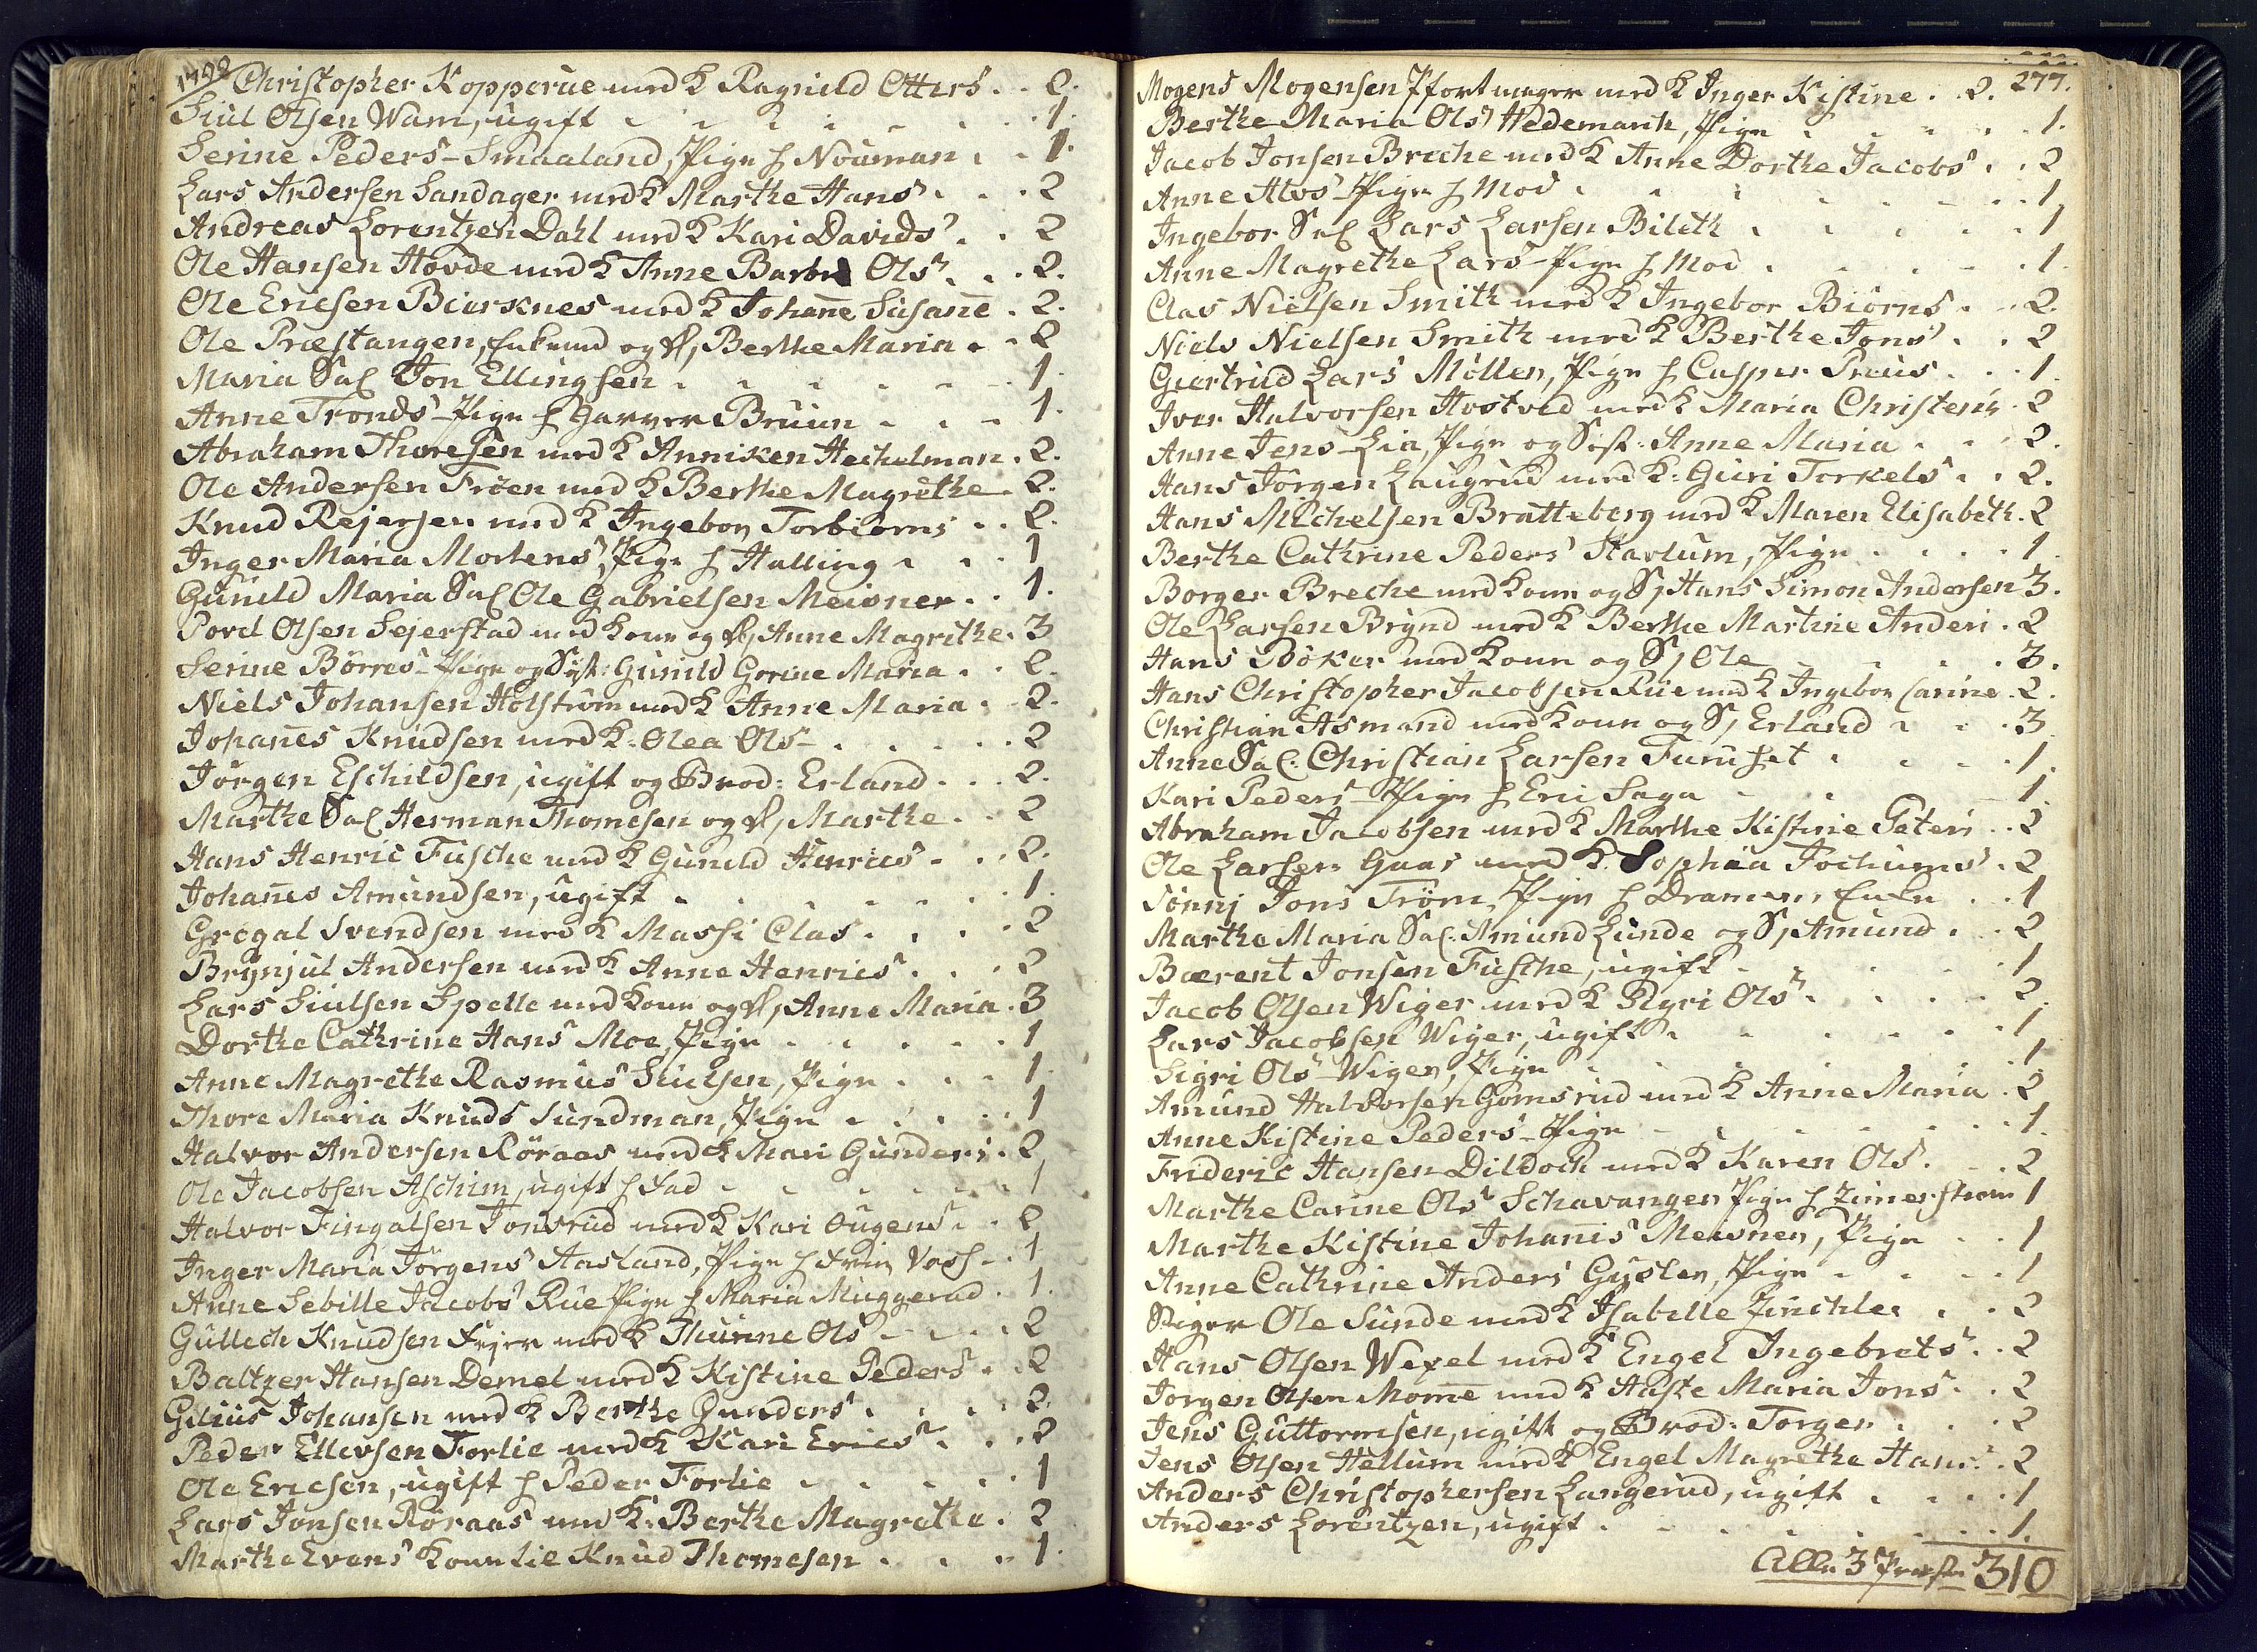 Christopher Kopperue med K Ragnild Otters . . 2.
Siul Olsen Wam, ugift . . . . . 1.
Serine Peders- Smaaland, Pige h Nouman . . 1.
Lars Andersen Sandager med K Marthe Hans . . . 2
Andreas Lorentzen Dahl med K Kari Davids . . 2
Ole Hansen Hovde med K Anne Barbra Ols . . . 2.
Ole Ericsen Bierknes med K Johañe Susañe . 2.
Ole Præstangen, Enkemd og D, Berthe Maria . . 2
Maria Sal Jon Ellingsen . . . . . 1.
Anne Tronds- Pige h Garver Bruun . . . 1.
Abraham Thoresen med K Anniken Hechelman . 2.
Ole Andersen Troen med K Berthe Magrethe . 2.
Knud Rejersen med K Ingebor Torbiørns . . 2.
Inger Maria Mortens, Pige h Halling . . . 1
Gunild Maria Sal Ole Gabrielsen Meisner . . 1.
Povel Olsen Sejerstad med Kone og D, Anne Magrethe . 3
Serine Børres- Pige og Syst: Gunild Gorine Maria . . 2.
Niels Johansen Holstrøm med K Anne Maria . 2.
Johañes Knudsen med K: Olea Ols- . . . . . 2
Jørgen Eschildsen, ugift og Brod: Erland . . . 2.
Marthe Sal Herman Thomesen og D, Marthe . . 2
Hans Henric Fusche med K Gunild Henrics . . . 2.
Johañes Amundsen, ugift . . . . . 1.
Gregal Svendsen med K Massi Clas . . . . 2
Brynjul Andersen med K Anne Henrics . . . 2
Lars Siulsen Spelle med Kone og D, Anne Maria . 3
Dorthe Cathrine Hans Moe, Pige . . . . . 1
Anne Magrethe Rasmus Siulsen, Pige . . . 1.
Thore Maria Knuds Sundman, Pige . . . . 1
Halvor Andersen Röraas med K Mari Gunders . 2
Ole Jacobsen Aschim, ugift h Fad . . . . . 1
Halvor Fingalsen Tonsrud med K Kari Ougens . . 2
Inger Maria Jörgens Aasland, Pige h Voss . . 1
Anne Sebille Jacobs Rue Pige h Maria Muggerud . 1.
Gullech Knudsen Fejer med K Thurine Ols . . . 2
Baltzer Hansen Demel med K Kistine Peders . . 2
Gilius Johansen med K Berthe Gunders . . . . 2.
Peder Ellevsen Forlie med K Kari Erics . . . 2
Ole Ericsen, ugift h Peder Forlie . . . . . 1
Lars Jonsen Röraas med K: Berthe Magrethe . 2
Marthe Evens Kone lie Knud Thomesen . . . 1.
Mogens Mogensen med K Inger Kistine . 2. 277.
Berthe Maria Ols Hedemark, Pige . . . . 1.
Jacob Jonsen Breche med K Anne Dorthe Jacobs . . 2
Anne Atvs- Pige h Mod . . . . . 1.
Ingebor Sal Lars Larsen Bileth . . . . . 1
Anne Magrethe Lars- Pige h Mod . . . . . 1.
Clas Nielsen Smith med K Ingebor Biørns . . 2.
Niels Nielsen Smith med K Berthe Jons . . 2
Giertrud Lars Möllen, Pige h Casper Preus . . . 1.
Iver Halvorsen Hvostved med K Maria Christens 2
Anne Jens- Lia, Pige og Søst: Anne Maria . . . 2.
Hans Jörgen Laugrud med K: Guri Torkels . . 2.
Hans Michelsen Bratteberg med K Maren Elisabeth . 2
Berthe Cathrine Peders Stavlum, Pige . . . . 1.
Borger Breche med Kone og S, Hans Simon Andersen 3.
Ole Larsen Brynd med K Berthe Martine Anders . 2
Hans Böker med Kone og S, Ole . . . . 3.
Hans Christopher Jacobsen Rue med K Ingebor Carine . 2.
Christian Asmand med Kone og S, Erland . . . 3
Anne Sal: Christian Larsen Furuset . . . . 1.
Kari Peders- Pige h Eric Saga . . . 1.
Abraham Jacobsen med K Marthe Kistine Peters . . 2
Ole Larsen Gaas med K Sophia Jochums . 2
Sönnj Jons Tröm, Pige h Enke . . 1
Marthe Maria Sal: Amund Lunde og S, Amund . . 2
Bærent Jonsen Fusche, ugift . . . . 1
Jacob Olsen Wiger med K Ragri Ols . . . . 2.
Lars Jacobsen Wiger, ugift . . . . . 1
Sigri Ols- Wiger, Pige . . . . . 1
Amund Halvorsen Gomsrud med K Anne Maria . 2
Anne Kistine Peders- Pige . . . . . 1.
Frideric Hansen Dildoch med K Karen Ols . . . 2
Marthe Carine Ols Schavanger Pige h Zimerstrøm 1
Marthe Kistine Johanis Meisner, Pige . . . 1
Anne Cathrine Anders Gysler, Pige . . . . 1
Ole Sunde med K Isabelle Zinchler . . 2
Hans Olsen Wexel med K Engel Ingebrets . . 2
Jorgen Olsen Mome med K Aaste Maria Jons . . 2
Jens Guttormsen, ugift og Brod: Torger . . . 2
Jens Olsen Hellum med K Engel Magrethe Hans . . 2
Anders Christophersen Langerud, ugift . . . . 1
Anders Lorentzen, ugift . . . . . 1.
Alle 3 310